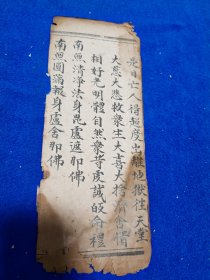 是日亡人得超度出離地獄往天堂
大慈大悲救衆生大喜大捨濟含情
相好光明體自然衆等虔誠皈命禮
南無清净法身毘盧遮那佛
南無圓滿報身盧舍那佛